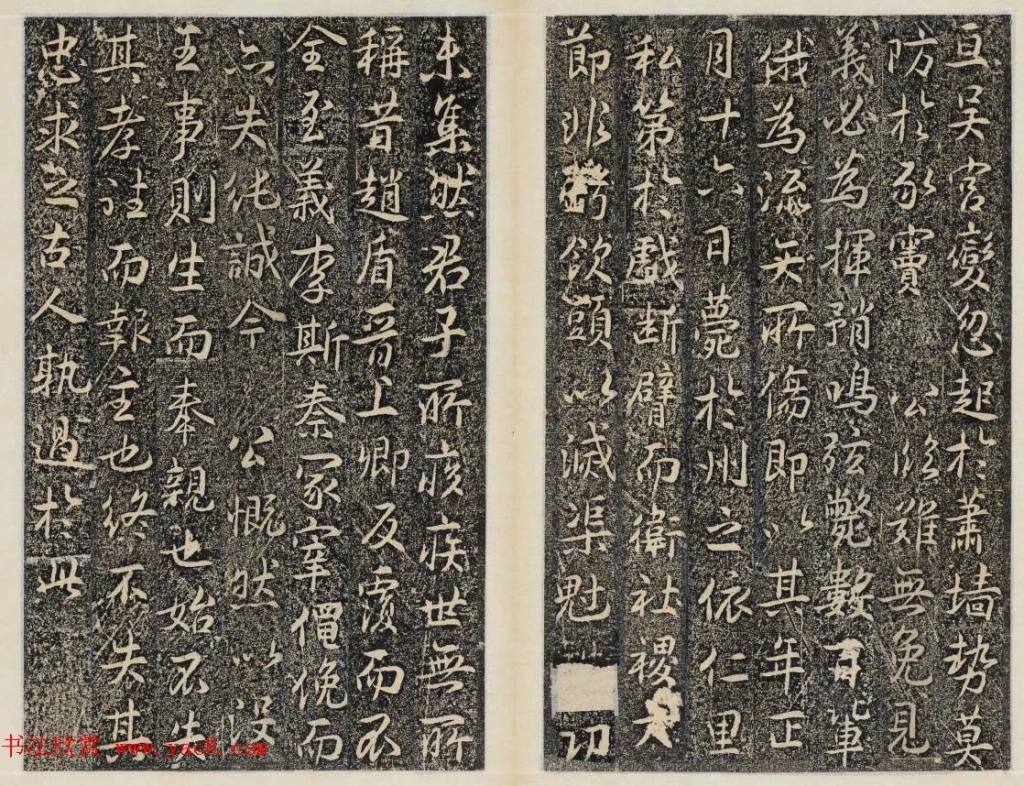 亘吴宮變忽起於蕭墻勢莫
防於豕竇 公臨難無免見
義必為揮矟鳴弦斃數百輩
俄為流矢所傷即以其年正
月十六日薨於州之依仁里
私第於戲斷臂而衛社稷大
節非虧飲頭以滅渠魁 切
未集然君子所疾世無所
稱昔趙盾晉上卿反覆而不
全至義李斯秦冢宰僶俛而
亦失純誠今 公慨然以沒
主事則生而奉親也始不失
其孝往而報主也終不失其
忠求之古人孰過於此
书法欣赏 www.yac8.com